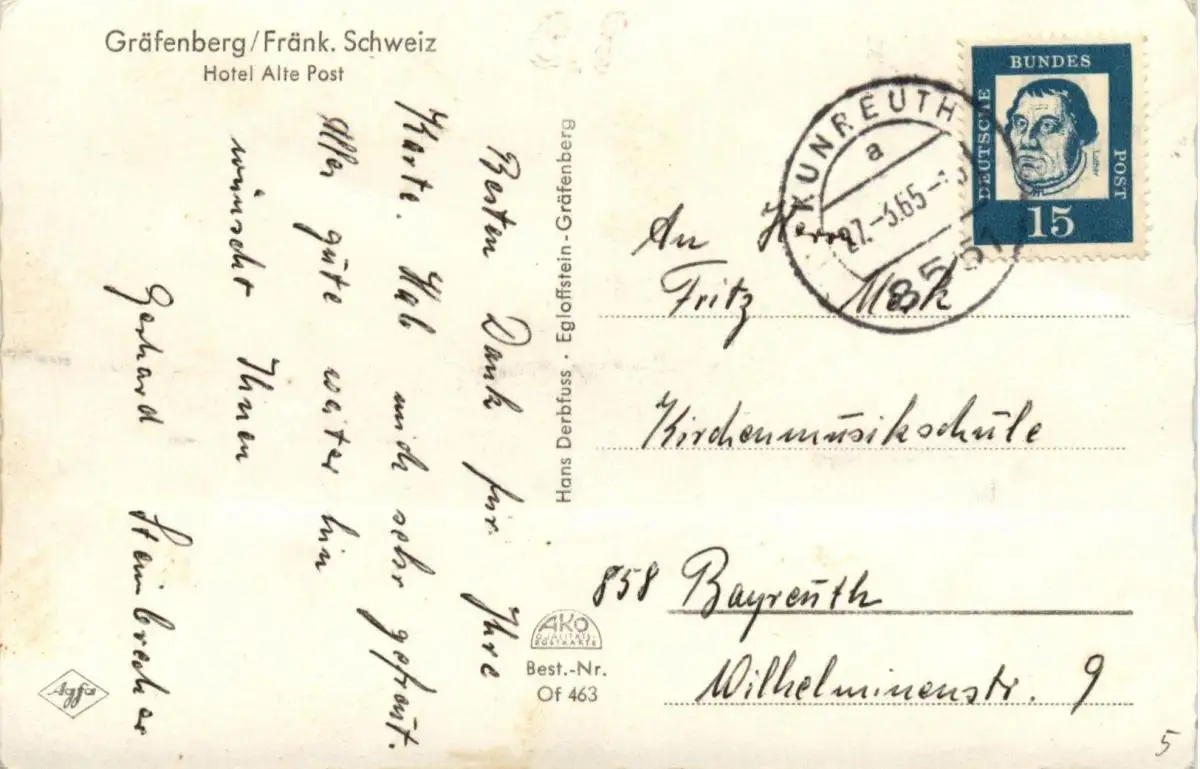 Gräfenberg/Fränk. Schweiz
Hotel Alte Post
Besten Dank für Ihre
Karte. Hab mich sehr gefreut.
Alles gute weiter hin
wünscht Ihnen
Gerhard Steinbrecher
Hans Derbfuss · Egloffstein-Gräfenberg
AKO
QUALITÄTS-
POSTKARTE
Best.-Nr.
Of 463
Agfa
KUNREUTH
a
27.-3.65-
8551
DEUTSCHE
BUNDES
POST
Luther
15
An Herrn
Fritz Merk
Kirchenmusikschule
858 Bayreuth
Wilhelminenstr. 9
5